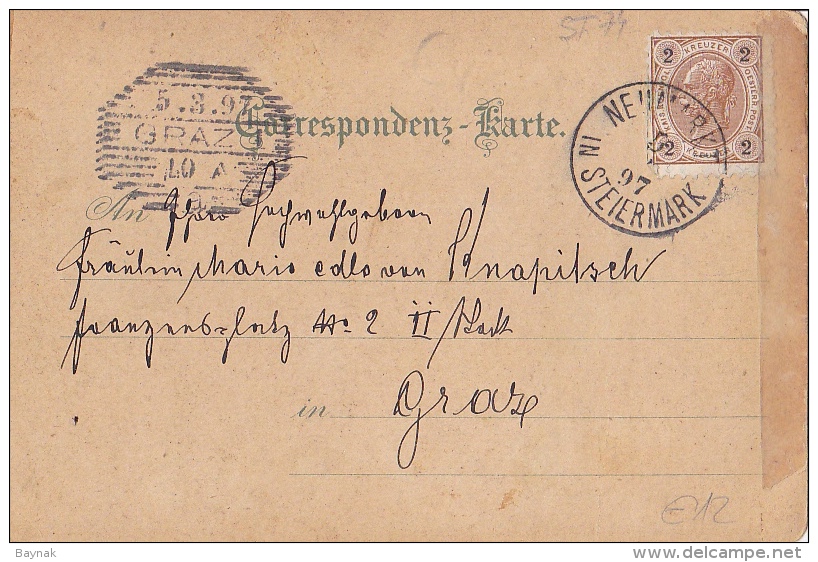 ST 74
2 KREUZER 2
2 2
NEUMARKT
97
IN STEIERMARK
5.3.97
GRAZ
10 A
Correspondenz-Karte.
An Ihro Hochwohlgeboren
Fräulein Marie edle von Knapitsch
Franzensplatz No 2 II Stock
in Graz
€12
Baynak
www.delcampe.net